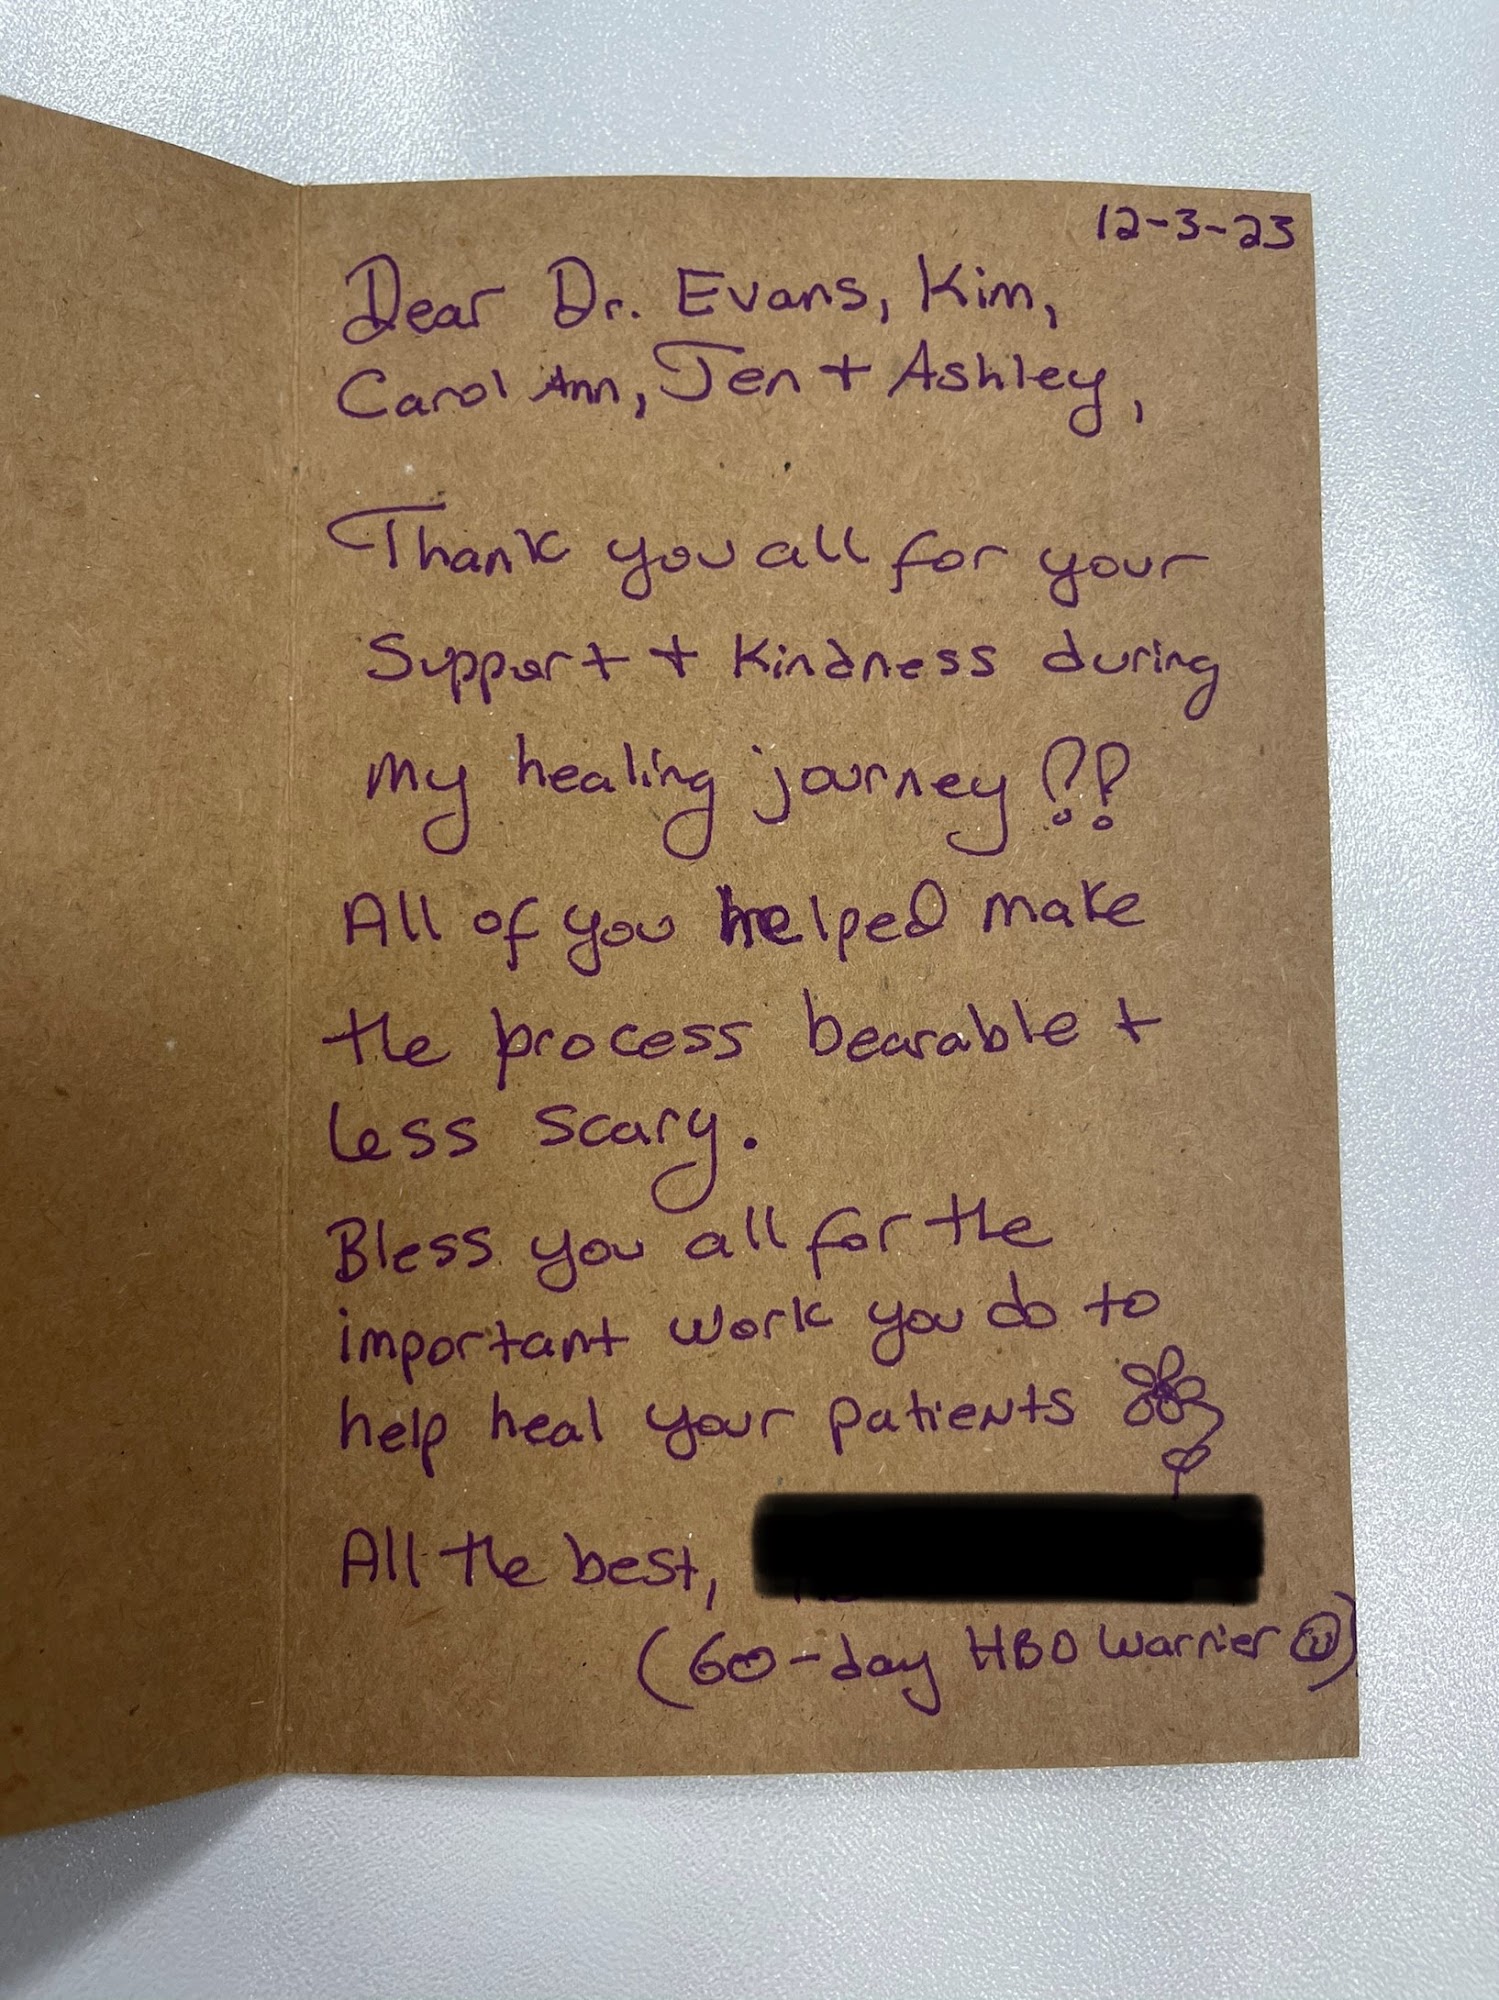 12-3-23
Dear Dr. Evans, Kim,
Carol Ann, Jen + Ashley,
Thank you all for your
Support + Kindness during
my healing journey!!
All of you helped make
the process bearable +
less scary.
Bless you all for the
important work you do to
help heal your patients
All the best,
(60-day HBO Warrier)